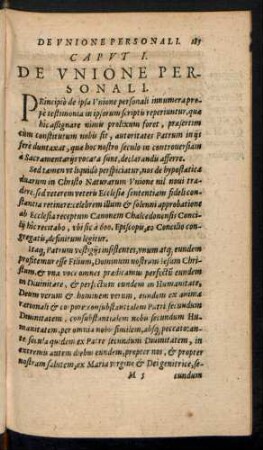 DE VNIONE PERSONALI. 187
CAPVT I.
DE VNIONE PER-
SONALI.
PRincipiò de ipsa Vnione personali innumera pro-
pè testimonia in ipsorum scriptis reperiuntur, quæ
hic assignare nimis prolixum foret, præsertim
cùm constitutum nobis sit, autoritates Patrum in ijs
ferè duntaxat, quæ hoc nostro seculo in controuersiam
a Sacramentarijs vocata sunt, declarandis afferre.
Sed tamen vt liquidò perspiciatur, nos de hypostatica
duarum in Christo Naturarum Vnione nil noui trade-
re, sed veterem veteris Ecclesiæ sententiam fideli con-
stantia retinere: celebrem illum & solenni approbatione
ab Ecclesia receptum Canonem Chalcedonensis Conci-
lij hic recitabo, vbi sic à 600. Episcopis, ex Concilio con-
gregatis, definitum legitur.
Itaq́; Patrum vestigijs insistentes, vnum atq́; eundem
profitemur esse Filium, Dominum nostrum Iesum Chri-
stum, & vna voce omnes prædicamus perfectũ eundem
in Diuinitate, & perfectum eundem in Humanitate,
Deum verum & hominem verum, eundem ex anima
rationali & corpore: consubstantialem Patri secundum
Diuinitatem, consubstantialem nobis secundum Hu-
manitatem, per omnia nobis similem, absq́; peccato: an-
te secula quidem ex Patre secundum Diuinitatem, in
extremis autem diebus eundem, propter nos, & propter
nostram salutem, ex Maria virgine & Dei genitrice, se-
M 5 cundum